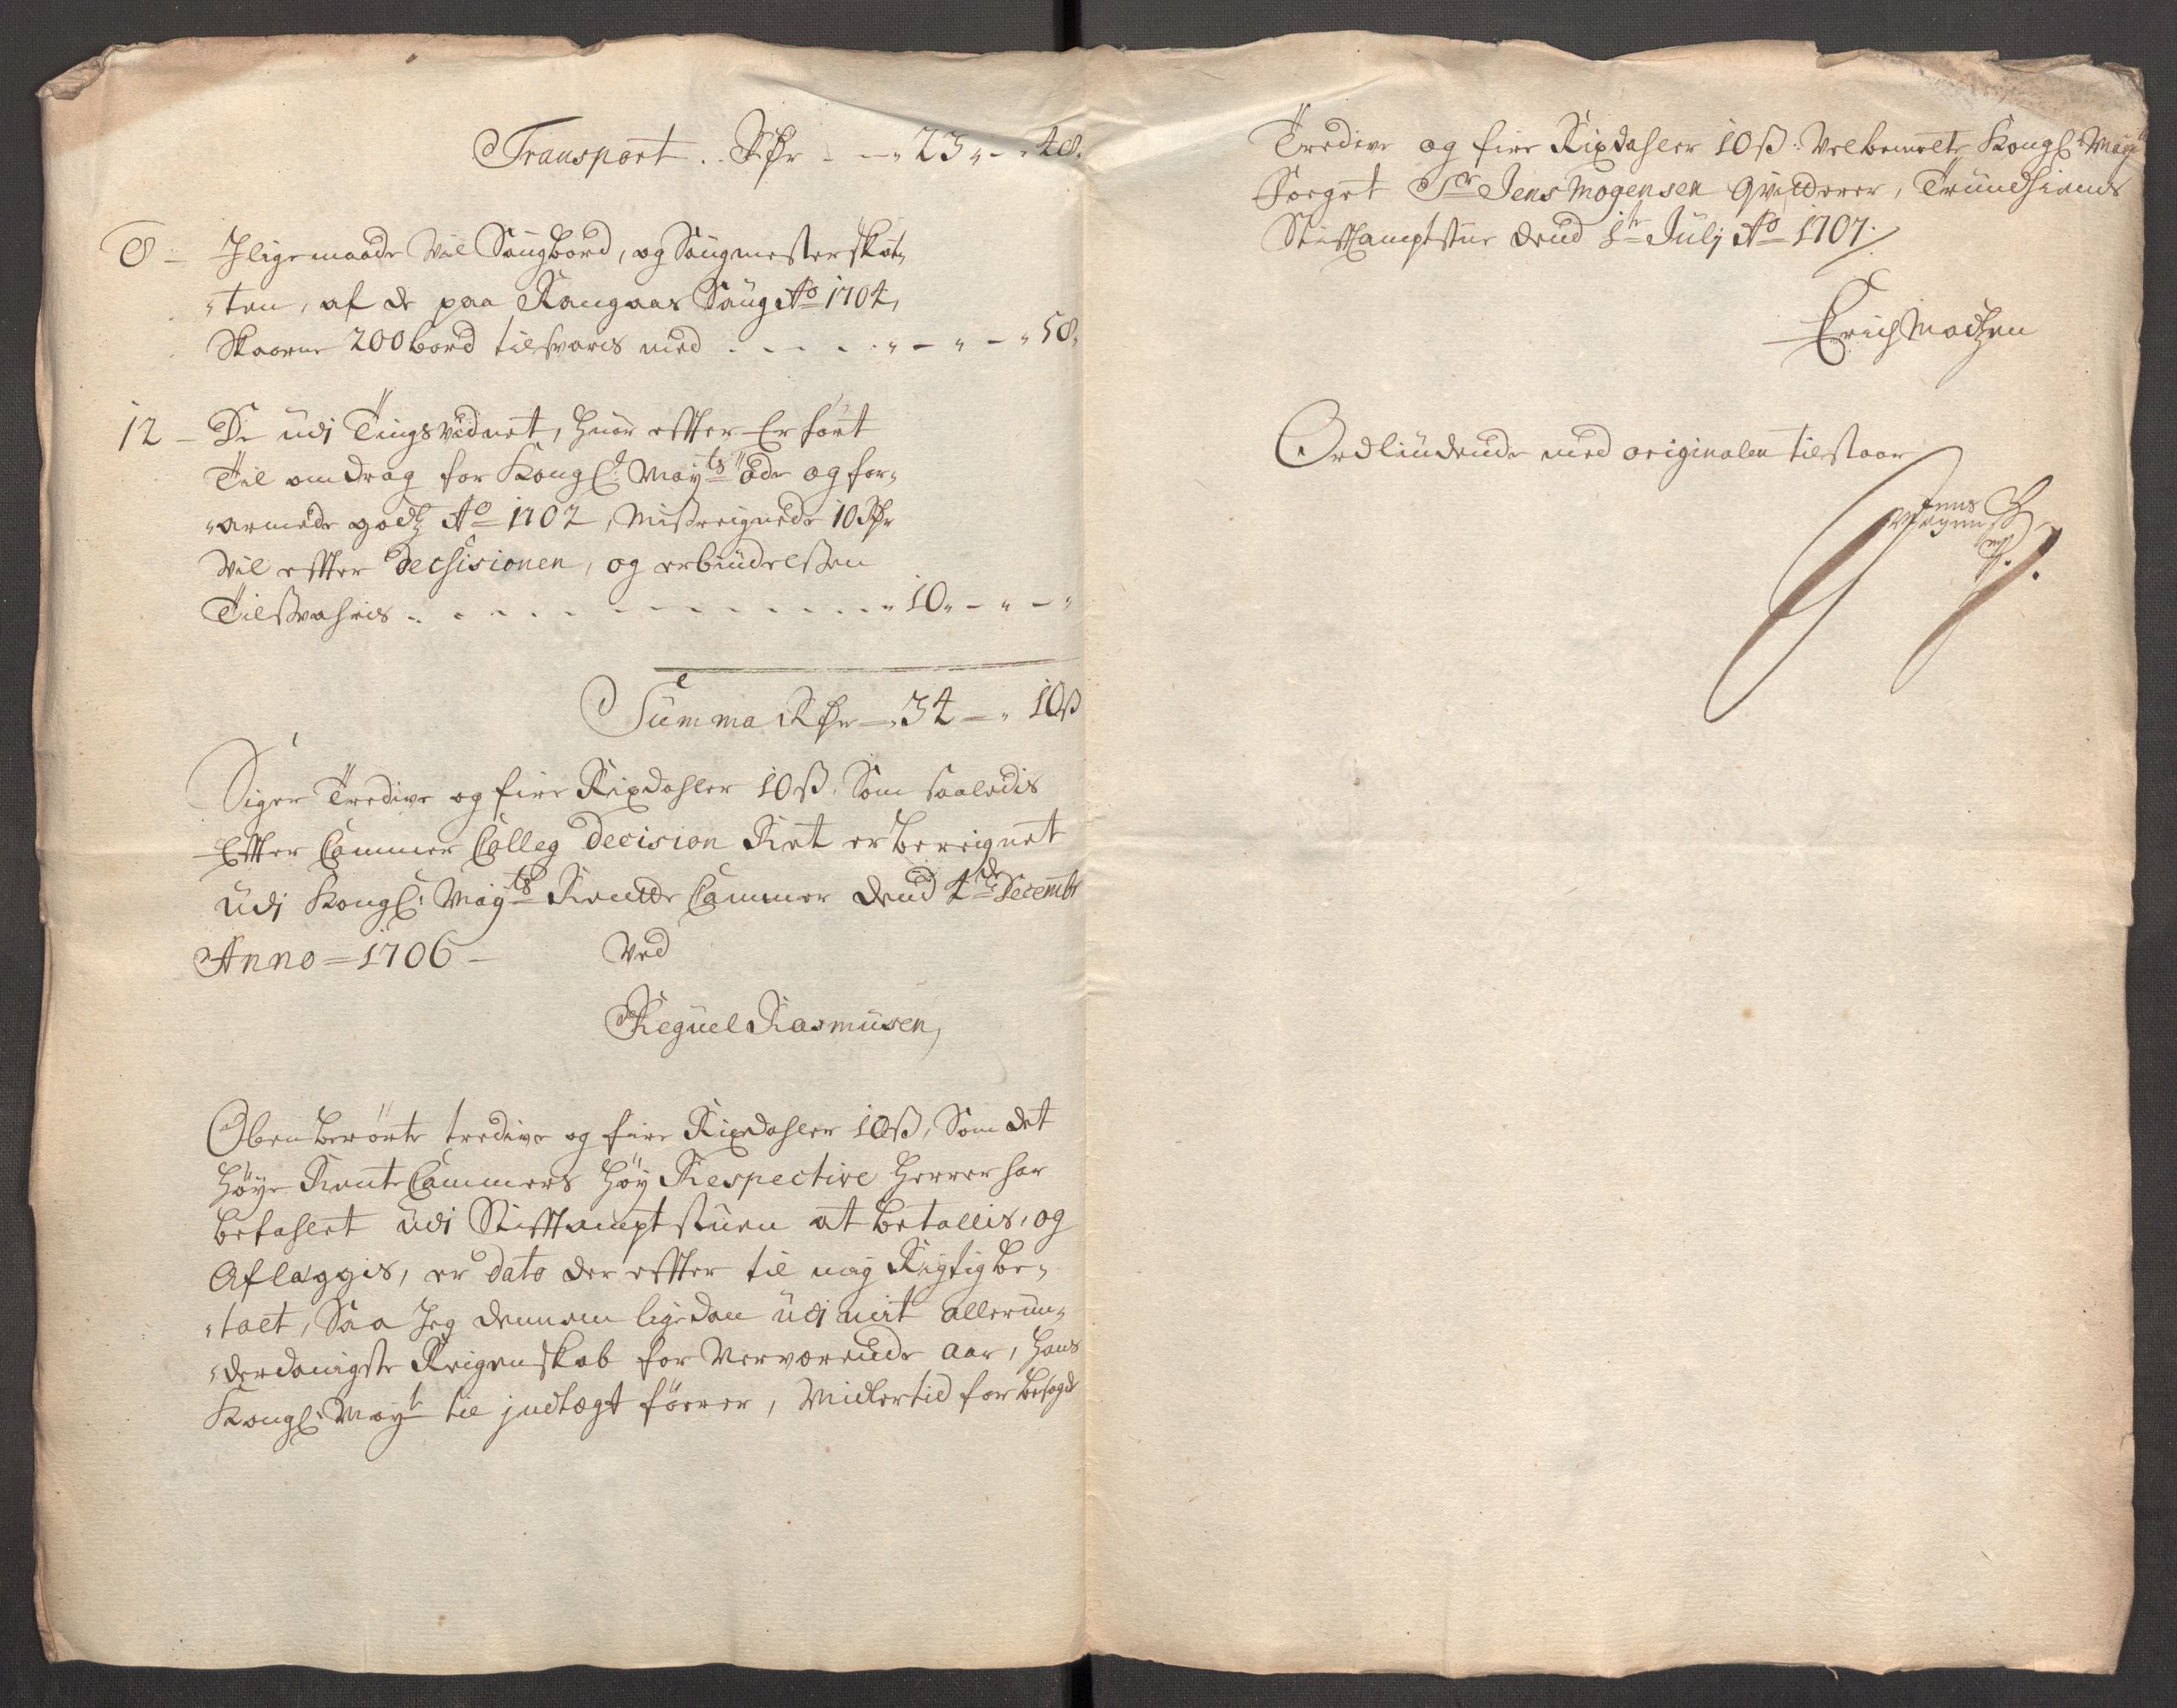 Transport .. Rdr - - 23 " - " 48.
8 - Jligemaade Vil Saugbord, og Saugmester skat¬
"ten, af de paa Rangaas Saug Ao 1704,
Skaarne 200 bord tilsvaris med . - . - . " - " - " 58,
12 - De udi Tingsvidnet, huor effter Er ført
Til omdrag for Kongl: Mayts øde og for¬
"armede godtz Ao 1702, Misreignede 10 Rdr
Vil effter Decsisionen, og erbiudelsen
Tilsvahris - - - - - - - - - - " 10 " - " - "
Summa Rdr - 34 - " 10 ß
Siger Tredive og fire Rixdahler 10 ß. Som saaledis
Effter Cammer Colleg Decision Ret er bereignet
Udi Kongl: Mayts Rentte Cammer dend 4de Decembr
Anno = 1706 - Ved
Reguel Rasmusen,
Ofvenberørte tredive og fire Rixdahler 10 ß, Som det
Høye Rente Cammers Høy Respective Herrer har
befahlet udi Stifftamptstuen at betallis, og
Aflæggis, er dato der effter til mig Rigtig be¬
"talt, Saa Jeg dennem ligedan udi mit allerun¬
"derdanigste Reigenskab for Nerværende Aar, Hans
Kongl: Mayt til jndtægt fører, Midlertid for besagde
Tredive og fire Rixdahler 10 ß. Velbemelte Kongl: Mayts
Foeget Sr Jens Mogensen Qvitterer, Trundhiems
Stifftamptstue dend 1te Julj Ao 1707.
Erich Madtzen
Ordliudende med originalen tilstaar
Jens
Mogens